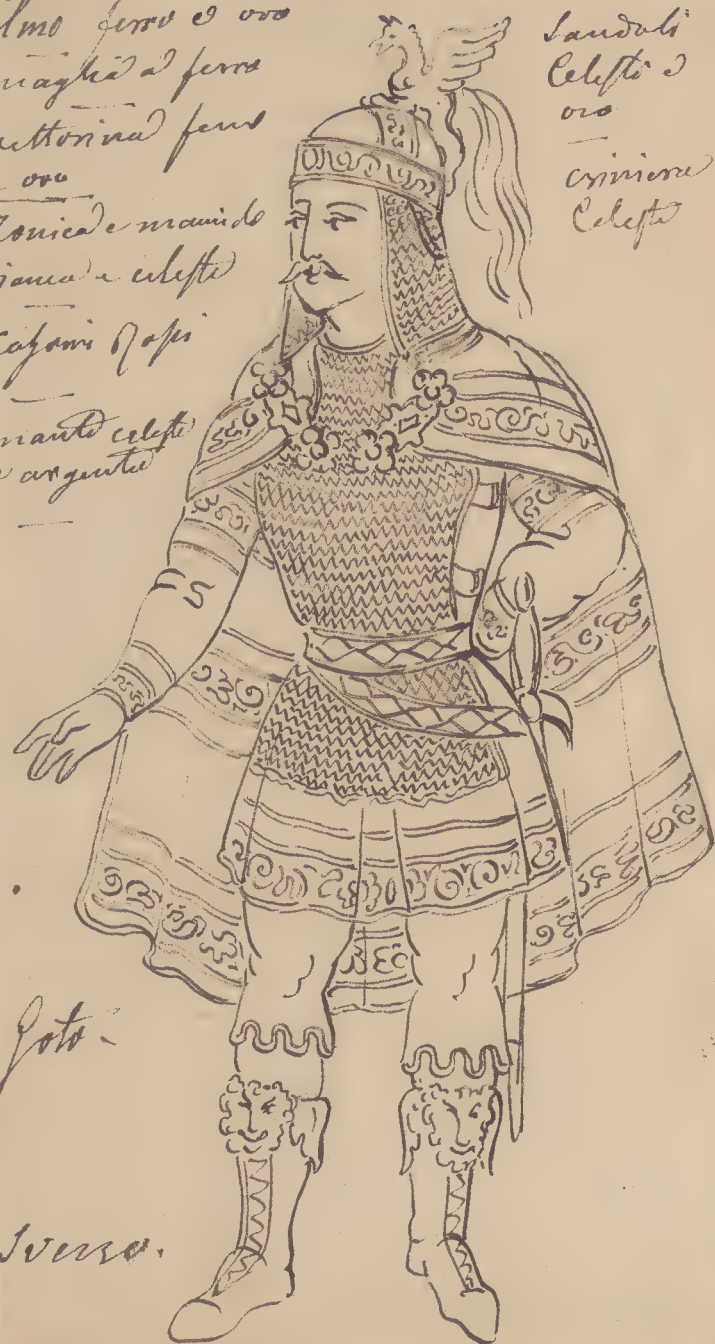 elmo ferro e oro
maglia di ferro
pettorina ferro
oro
Tonica e manide
bianca e celeste
Calzoni Rossi
manto celeste
e argento
Sandali
Celesti e
oro
criniera
Celeste
Goto.
Svezzo.